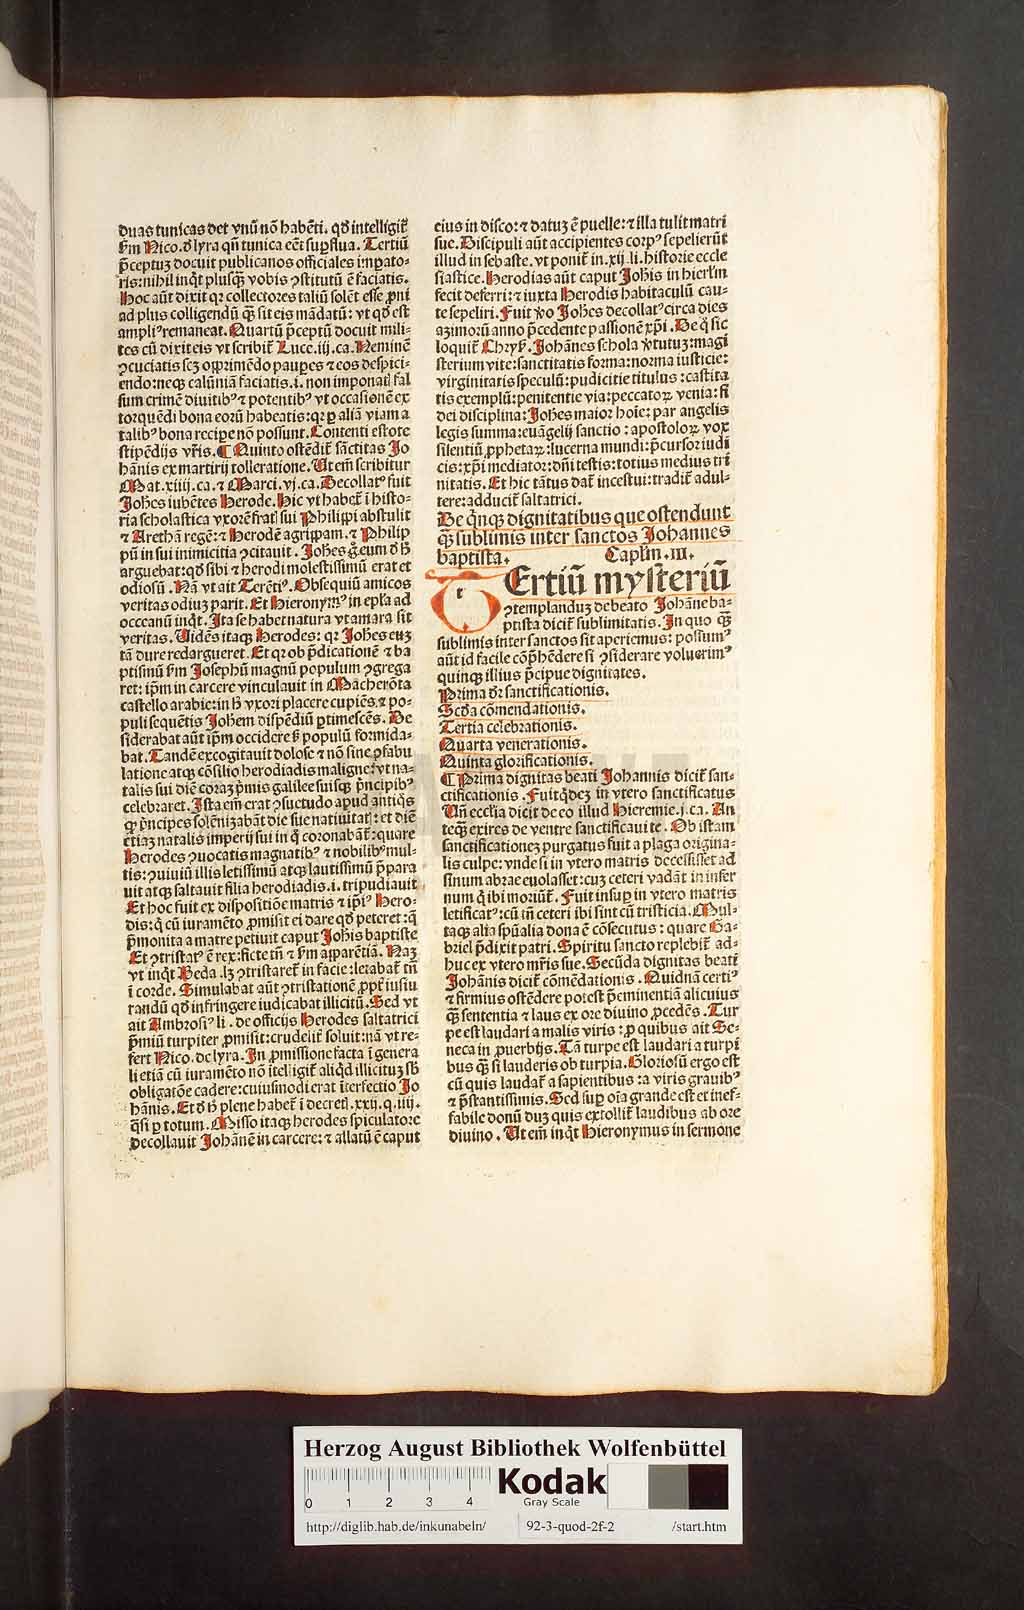 duas tunicas det vnū nō habēti. qd̄ intelligit̄
ẜm Nico. d̓ lyra qn̄ tunica eēt sup̄flua. Tertiū
p̄ceptuꝫ docuit publicanos officiales imꝑato-
ris: nihil inq̄t plusq̄ꝫ vobis ꝯstitutū ē faciatis.
Hoc aūt dixit qꝛ collectores taliū solēt esse ꝓni
ad plus colligendū q̄ꝫ sit eis mādatū: vt qd̄ est
ampliꝰ remaneat. Quartū p̄ceptū docuit mili-
tes cū dixit eis vt scribit̄ Luce .iij. ca. Neminē
ꝯcuciatis scꝫ opprimēdo pauꝑes ⁊ eos despici-
endo: neqꝫ calūniā faciatis .i. non imponat fal
sum crimē diuitibꝰ ⁊ potentibꝰ vt occasionē ex
torquēdi bona eorū habeatis: qꝛ ꝑ aliā viam a
talibꝰ bona recipe nō possunt. Contenti estote
stipēdijs vr̄is. ¶ Quinto ostēdit̄ sāctitas Jo
hānis ex martirij tolleratione. Ut em̄ scribitur
Mat. xiiij. ca. ⁊ Marci .vj. ca. Decollatꝰ fuit
Joh̄es iubētes Herode. Hic vt habet̄ ī histo-
ria scholastica vxorē frat̄ sui Philippi abstulit
⁊ Arethā regē: ⁊ Herodē agrippam. ⁊ Philip
pū in sui inimicitia ꝯcitauit. Joh̄es g̊ eum d̓ h̄
arguebat: qd̄ sibi ⁊ herodi molestissimū erat et
odiosū. Nā vt ait Terētiꝰ. Obsequiū amicos
veritas odiuꝫ parit. Et Hieronymꝰ in ep̄la ad
occeanū inq̄t. Ita se habet natura vt amara sit
veritas. Uidēs itaqꝫ Herodes: qꝛ Joh̄es euꝫ
tā dure redargueret. Et qꝛ ob p̄dicationē ⁊ ba
ptismū ẜm Josephū magnū populum ꝯgrega
ret: ip̄m in carcere vinculauit in Macherōta
castello arabie: in h̄ vxori placere cupiēs, ⁊ po-
puli sequētis Joh̄em dispēdiū ꝑtimescēs. De
siderabat aūt ip̄m occidere ẜ populū formida-
bat. Tandē excogitauit dolose ⁊ nō sine ꝯfabu
latione atqꝫ cōsilio herodiadis maligne: vt na-
talis sui diē coraꝫ p̄mis galilee suisqꝫ p̄ncipibꝰ
celebraret. Ista em̄ erat ꝯsuetudo apud antiq̊s
ꝙ p̄ncipes solēnizabāt diē sue natiuitatꝭ: et diē
etiaꝫ natalis imperij sui in q̄ coronabāt̄: quare
Herodes ꝯuocatis magnatibꝰ ⁊ nobilibꝰ mul-
tis: ꝯuiuiū illis letissimū atqꝫ lautissimū p̄para
uit atqꝫ saltauit filia herodiadis .i. tripudiauit
Et hoc fuit ex dispositiōe matris ⁊ ip̄iꝰ Hero-
dis: q̄ cū iuramēto ꝓmisit ei dare qd̄ peteret: q̄
p̄monita a matre petiuit caput Joh̄is baptiste
Et ꝯtristatꝰ ē rex: ficte tn̄ ⁊ ẜm apparētiā. Naꝫ
vt inq̄t Beda. lꝫ ꝯtristaret̄ in facie: letabat̄ tn̄
ī corde. Simulabat aūt ꝯtristationē ꝓpt̄ iusiu
randū qd̄ infringere iudicabat illicitū. Sed vt
ait Ambrosiꝰ li. de officijs Herodes saltatrici
p̄miū turpiter ꝓmisit: crudelit̄ soluit: nā vt re-
fert Nico. de lyra. In ꝓmissione facta ī genera
li etiā cū iuramēto nō ītelligit̄ aliq̄d illicituꝫ sb̄
obligatōe cadere: cuiusmodi erat īterfectio Jo
hānis. Et d̓ h̄ plene habet̄ ī decretꝭ. xxij. q. iiij.
q̄si ꝑ totum. Misso itaqꝫ herodes spiculatore
decollauit Johānē in carcere: ⁊ allatū ē caput
eius in disco: ⁊ datuꝫ ē puelle: ⁊ illa tulit matri
sue. Discipuli aūt accipientes corpꝰ sepelierūt
illud in sebaste. vt ponit̄ in .xij. li. historie eccle
siastice. Herodias aūt caput Joh̄is in hierl̄m
fecit deferri: ⁊ iuxta Herodis habitaculū cau-
te sepeliri. Fuit v̊o Joh̄es decollatꝰ circa dies
azimorū anno p̄cedente passionē xp̄i. De q̊ sic
loquit̄ Chryẜ. Johānes schola v̓tutuꝫ: magi
sterium vite: sanctitatis forma: norma iusticie:
virginitatis speculū: pudicitie titulus: castita
tis exemplū: penitentie via: peccatoꝝ venia: fi
dei disciplina: Joh̄es maior hoīe: par angelis
legis summa: euāgelij sanctio: apostoloꝝ vox
silentiū ꝓphetaꝝ: lucerna mundi: p̄cursor iudi
cis: xp̄i mediator: dn̄i testis: totius medius tri
nitatis. Et hic tātus dat̄ incestui: tradit̄ adul-
tere: adducit̄ saltatrici.
De q̄nqꝫ dignitatibus que ostendunt
q̄ꝫ sublimis inter sanctos Johannes
baptista. Caplm̄ .iii.
t Ertiū mysteriū
ꝯtemplanduꝫ de beato Johāne ba-
ptista dicit̄ sublimitatis. In quo q̄ꝫ
sublimis inter sanctos sit aperiemus: possumꝰ
aūt id facile cōp̄hēdere si ꝯsiderare voluerimꝰ
quinqꝫ illius p̄cipue dignitates.
Prima dr̄ sanctificationis.
Scd̄a cōmendationis.
Tertia celebrationis.
Quarta venerationis.
Quinta glorificationis.
¶ Prima dignitas beati Johannis dicit̄ san-
ctificationis. Fuit q̄deꝫ in vtero sanctificatus
Un̄ eccl̄ia dicit de eo illud Hieremie .j. ca. An
teqꝫ exires de ventre sanctificaui te. Ob istam
sanctificationeꝫ purgatus fuit a plaga origina-
lis culpe: vnde si in vtero matris decessisset ad
sinum abrae euolasset: cuꝫ ceteri vadāt in infer
num q̄ ibi moriūt̄. Fuit insuꝑ in vtero matris
letificatꝰ: cū tn̄ ceteri ibi sint cū tristicia. Mul-
taqꝫ alia sp̄ualia dona ē cōsecutus: quare Ga-
briel p̄dixit patri. Spiritu sancto replebit̄ ad-
huc ex vtero mr̄is sue. Secūda dignitas beati
Johānis dicit̄ cōmēdationis. Quidnā certiꝰ
⁊ firmius ostēdere potest p̄eminentiā alicuius
q̄ꝫ sententia ⁊ laus ex ore diuino ꝓcedēs. Tur
pe est laudari a malis viris: ꝓ quibus ait Se-
neca in ꝓuerbijs. Tā turpe est laudari a turpi
bus q̄ꝫ si lauderis ob turpia. Gloriosū ergo est
cū quis laudat̄ a sapientibus: a viris grauibꝰ
⁊ p̄stantissimis. Sed suꝑ oīa grande est et inef-
fabile donū duꝫ quis extollit̄ laudibus ab ore
diuino. Ut em̄ inq̄t Hieronymus in sermone
Herzog August Bibliothek Wolfenbüttel
0 1 2 3 4
Kodak
Gray Scale
http://diglib.hab.de/inkunabeln/ 92-3-quod-2f-2 /start.htm